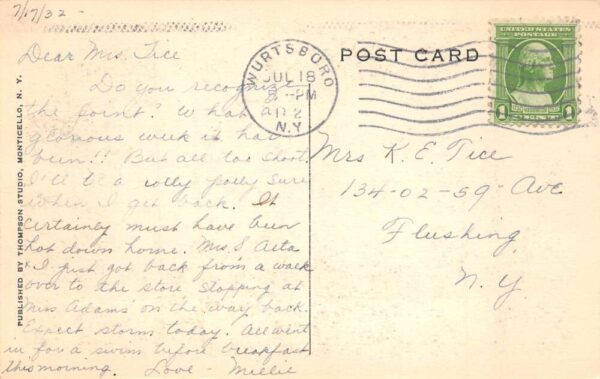 7/17/32 -
Dear Mrs. Tice
Do you recognize
the point? What a
glorious week it has
been!! But all too short.
I'll be a rolly polly sure
when I get back. It
certainly must have been
hot down home. Mrs. S.
+ I just got back from a walk
over to the store stopping at
Miss Adams' on the way back.
Expect storm today. All went
in for a swim before breakfast
this morning. Love - Millie
PUBLISHED BY THOMPSON STUDIO, MONTICELLO, N. Y.
POST CARD
WURTSBORO
JUL 18
-PM
N.Y.
UNITED STATES
POSTAGE
1 1
Mrs K. E. Tice
134-02-59 - Ave
Flushing
N.Y.